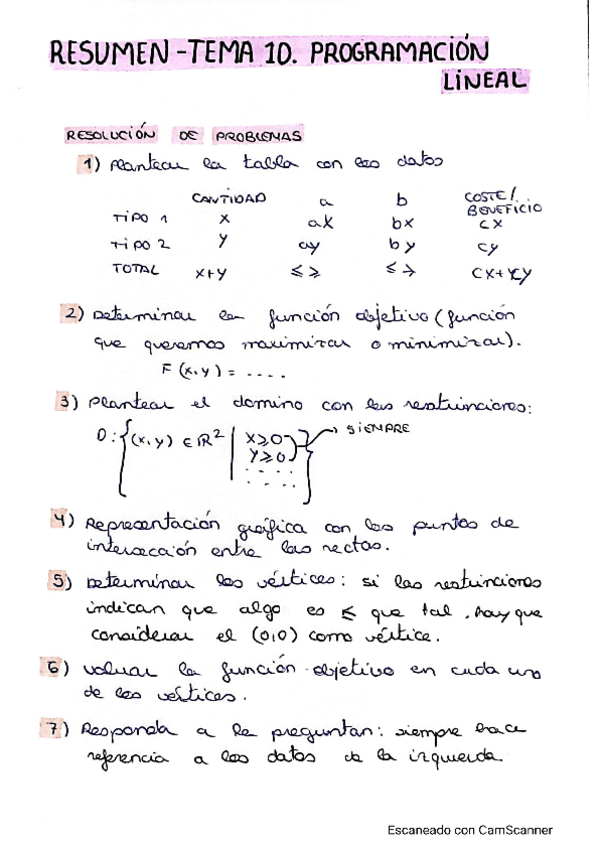 RESUMEN-TEMA 10. PROGRAMACIÓN
LINEAL
RESOLUCIÓN DE PROBLEMAS
1) Plantear la tabla con los datos
CANTIDAD a b COSTE/
BENEFICIO
TIPO 1 x ax bx cx
TIPO 2 y ay by cy
TOTAL x+y ≤ ≥ ≤ ≥ cx+cy
2) Determinar la función objetivo (función
que queremos maximizar o minimizar).
F(x,y) = ....
3) Plantear el domino con las restrinciones:
D: {(x,y) ∈ ℝ² | x≥0 → SIEMPRE
y≥0
. . . .
. . . . }
4) Representación gráfica con los puntos de
intersección entre las rectas.
5) Determinar los vértices: si las restrinciones
indican que algo es ≤ que tal, hay que
considerar el (0,0) como vértice.
6) Valuar la función objetivo en cada uno
de los vértices.
7) Responda a la preguntan: siempre hace
referencia a los datos de la izquierda.
Escaneado con CamScanner